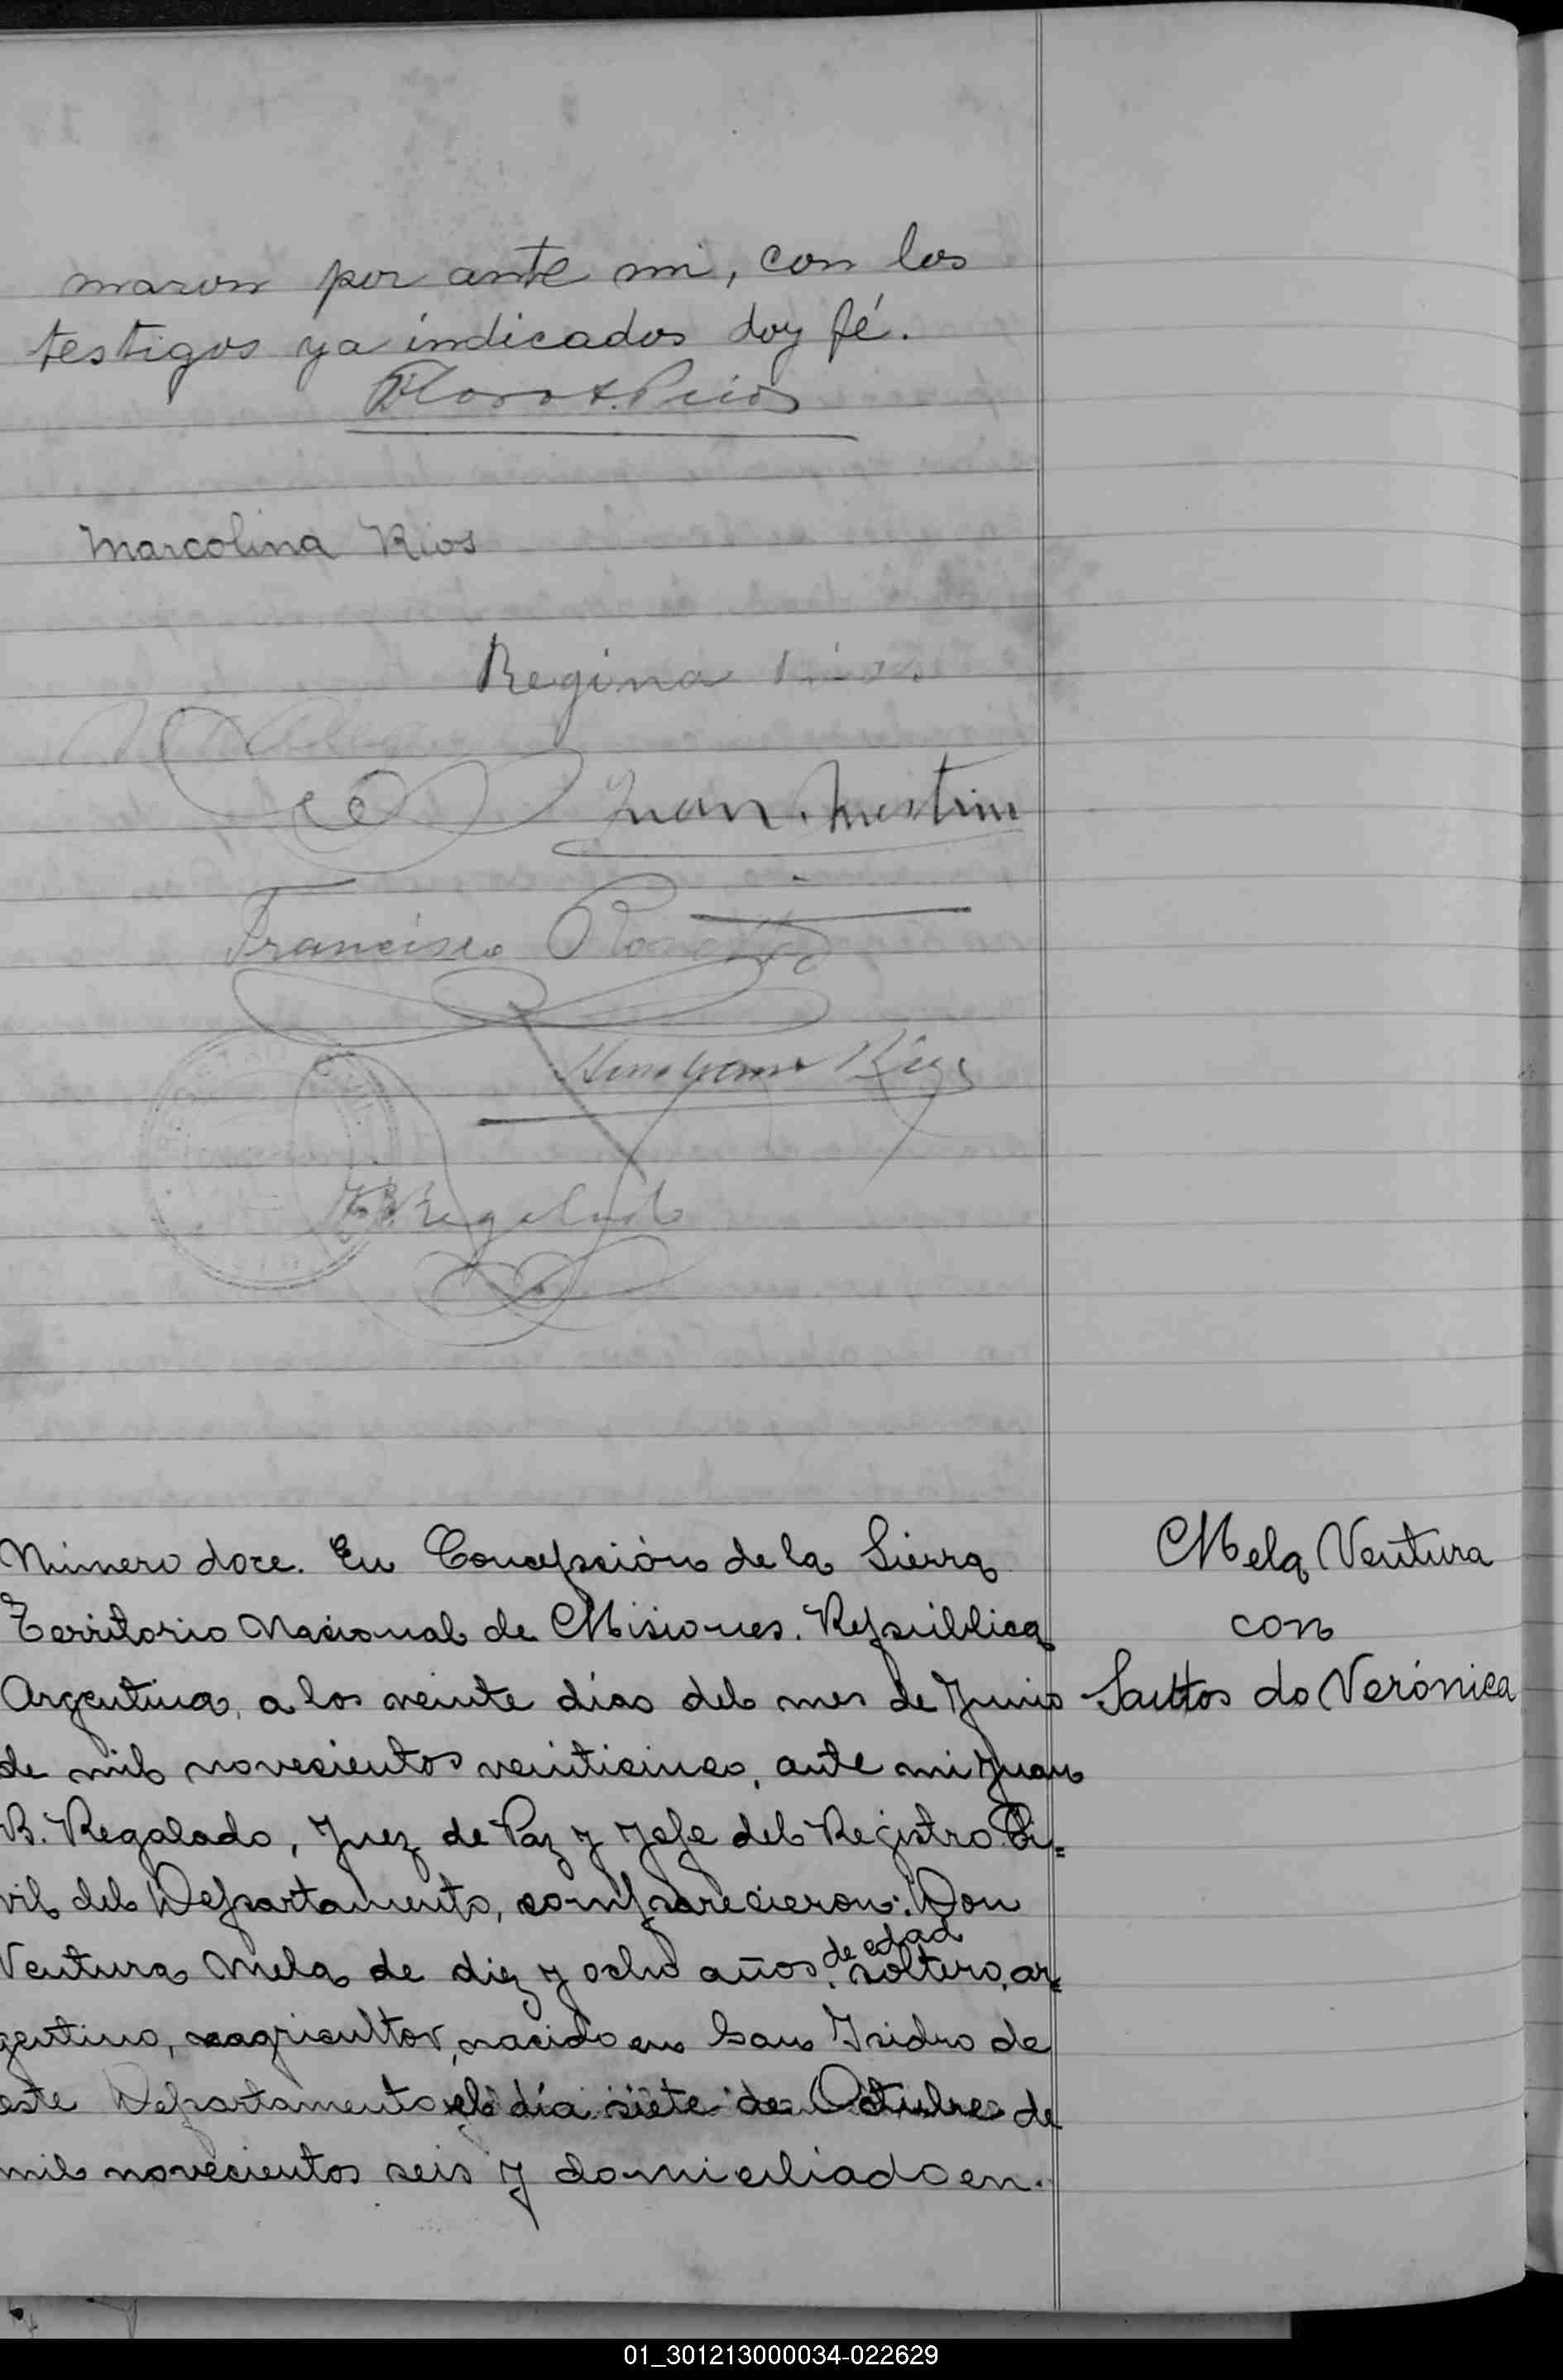 maron por ante mi, con los
testigos ya indicados doy fé.
Marcolina Rios
Regina
Juan
Francisco
Rios
Regalado
Número doce. En Concepción de la Sierra
Territorio Nacional de Misiones. República
Argentina, a los veinte días del mes de Junio
de mil novecientos veinticinco, ante mi Juan
B. Regalado, Juez de Paz y Jefe del Registro Ci=
vil del Departamento, comparecieron: Don
de edad
Ventura Mela de diez y ocho años. soltero, ar=
gentino, agricultor, nacido en San Isidro de
este Departamento el día siete de Octubre de
mil novecientos seis y domiciliado en.
Mela Ventura
con
Santos do Verónica
01_301213000034-022629